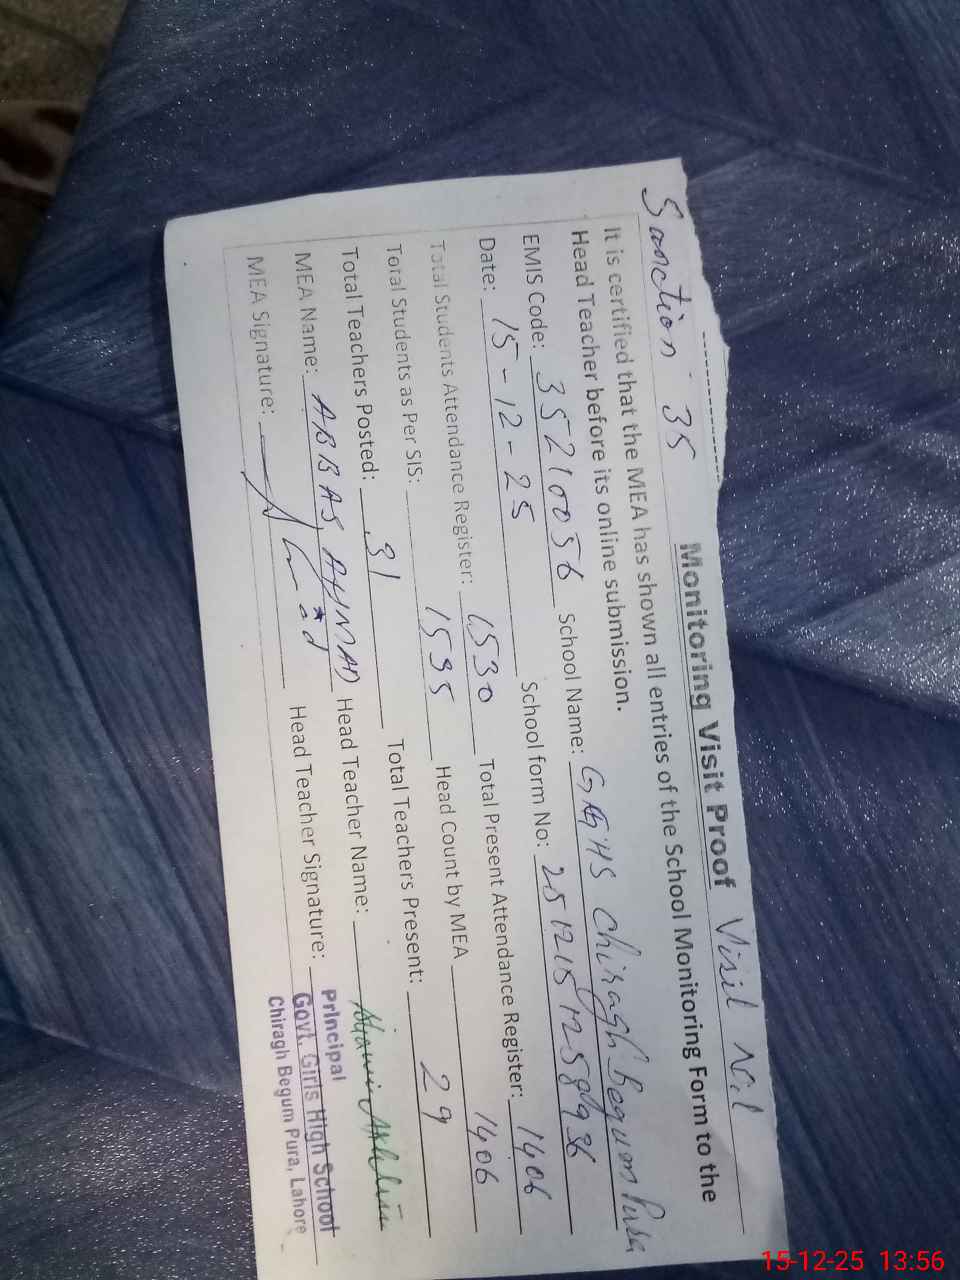 Sanction 35
Monitoring Visit Proof Visit No.1
It is certified that the MEA has shown all entries of the School Monitoring Form to the
Head Teacher before its online submission.
EMIS Code: 35210056 School Name: GGHS Chiragh Begum Pura
Date: 15-12-25 School form No:
Total Students Attendance Register: 1530 Total Present Attendance Register: 1406
Total Students as Per SIS: 1535 Head Count by MEA 1406
Total Teachers Posted: 31 Total Teachers Present: 29
MEA Name: ABBAS AHMAD Head Teacher Name:
MEA Signature: Head Teacher Signature:
Principal
Govt. Girls High School
Chiragh Begum Pura, Lahore
15-12-25 13:56